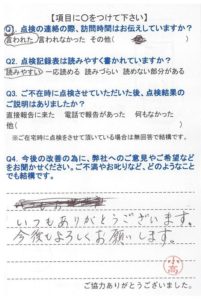 【項目に○をつけて下さい】
Q1. 点検の連絡の際、訪問時間はお伝えしていますか?
言われた 言われなかった その他(　　　)
Q2. 点検記録表は読みやすく書かれていますか?
読みやすい 一応読める 読みづらい 読めない部分がある
Q3. ご不在時に点検させていただいた後、点検結果の
ご説明はありましたか?
直接報告に来た 電話で報告があった 何もなかった
他(　　　)
※ご在宅時に点検をさせて頂いている場合は無回答で結構です。
Q4. 今後の改善の為に、弊社へのご意見やご希望など
をお聞かせください。ご不満やお叱りなど、どのようなこと
でも結構です。
いつもありがとうございます。
今後もよろしくお願いします。
小高
ご協力ありがとうございました。